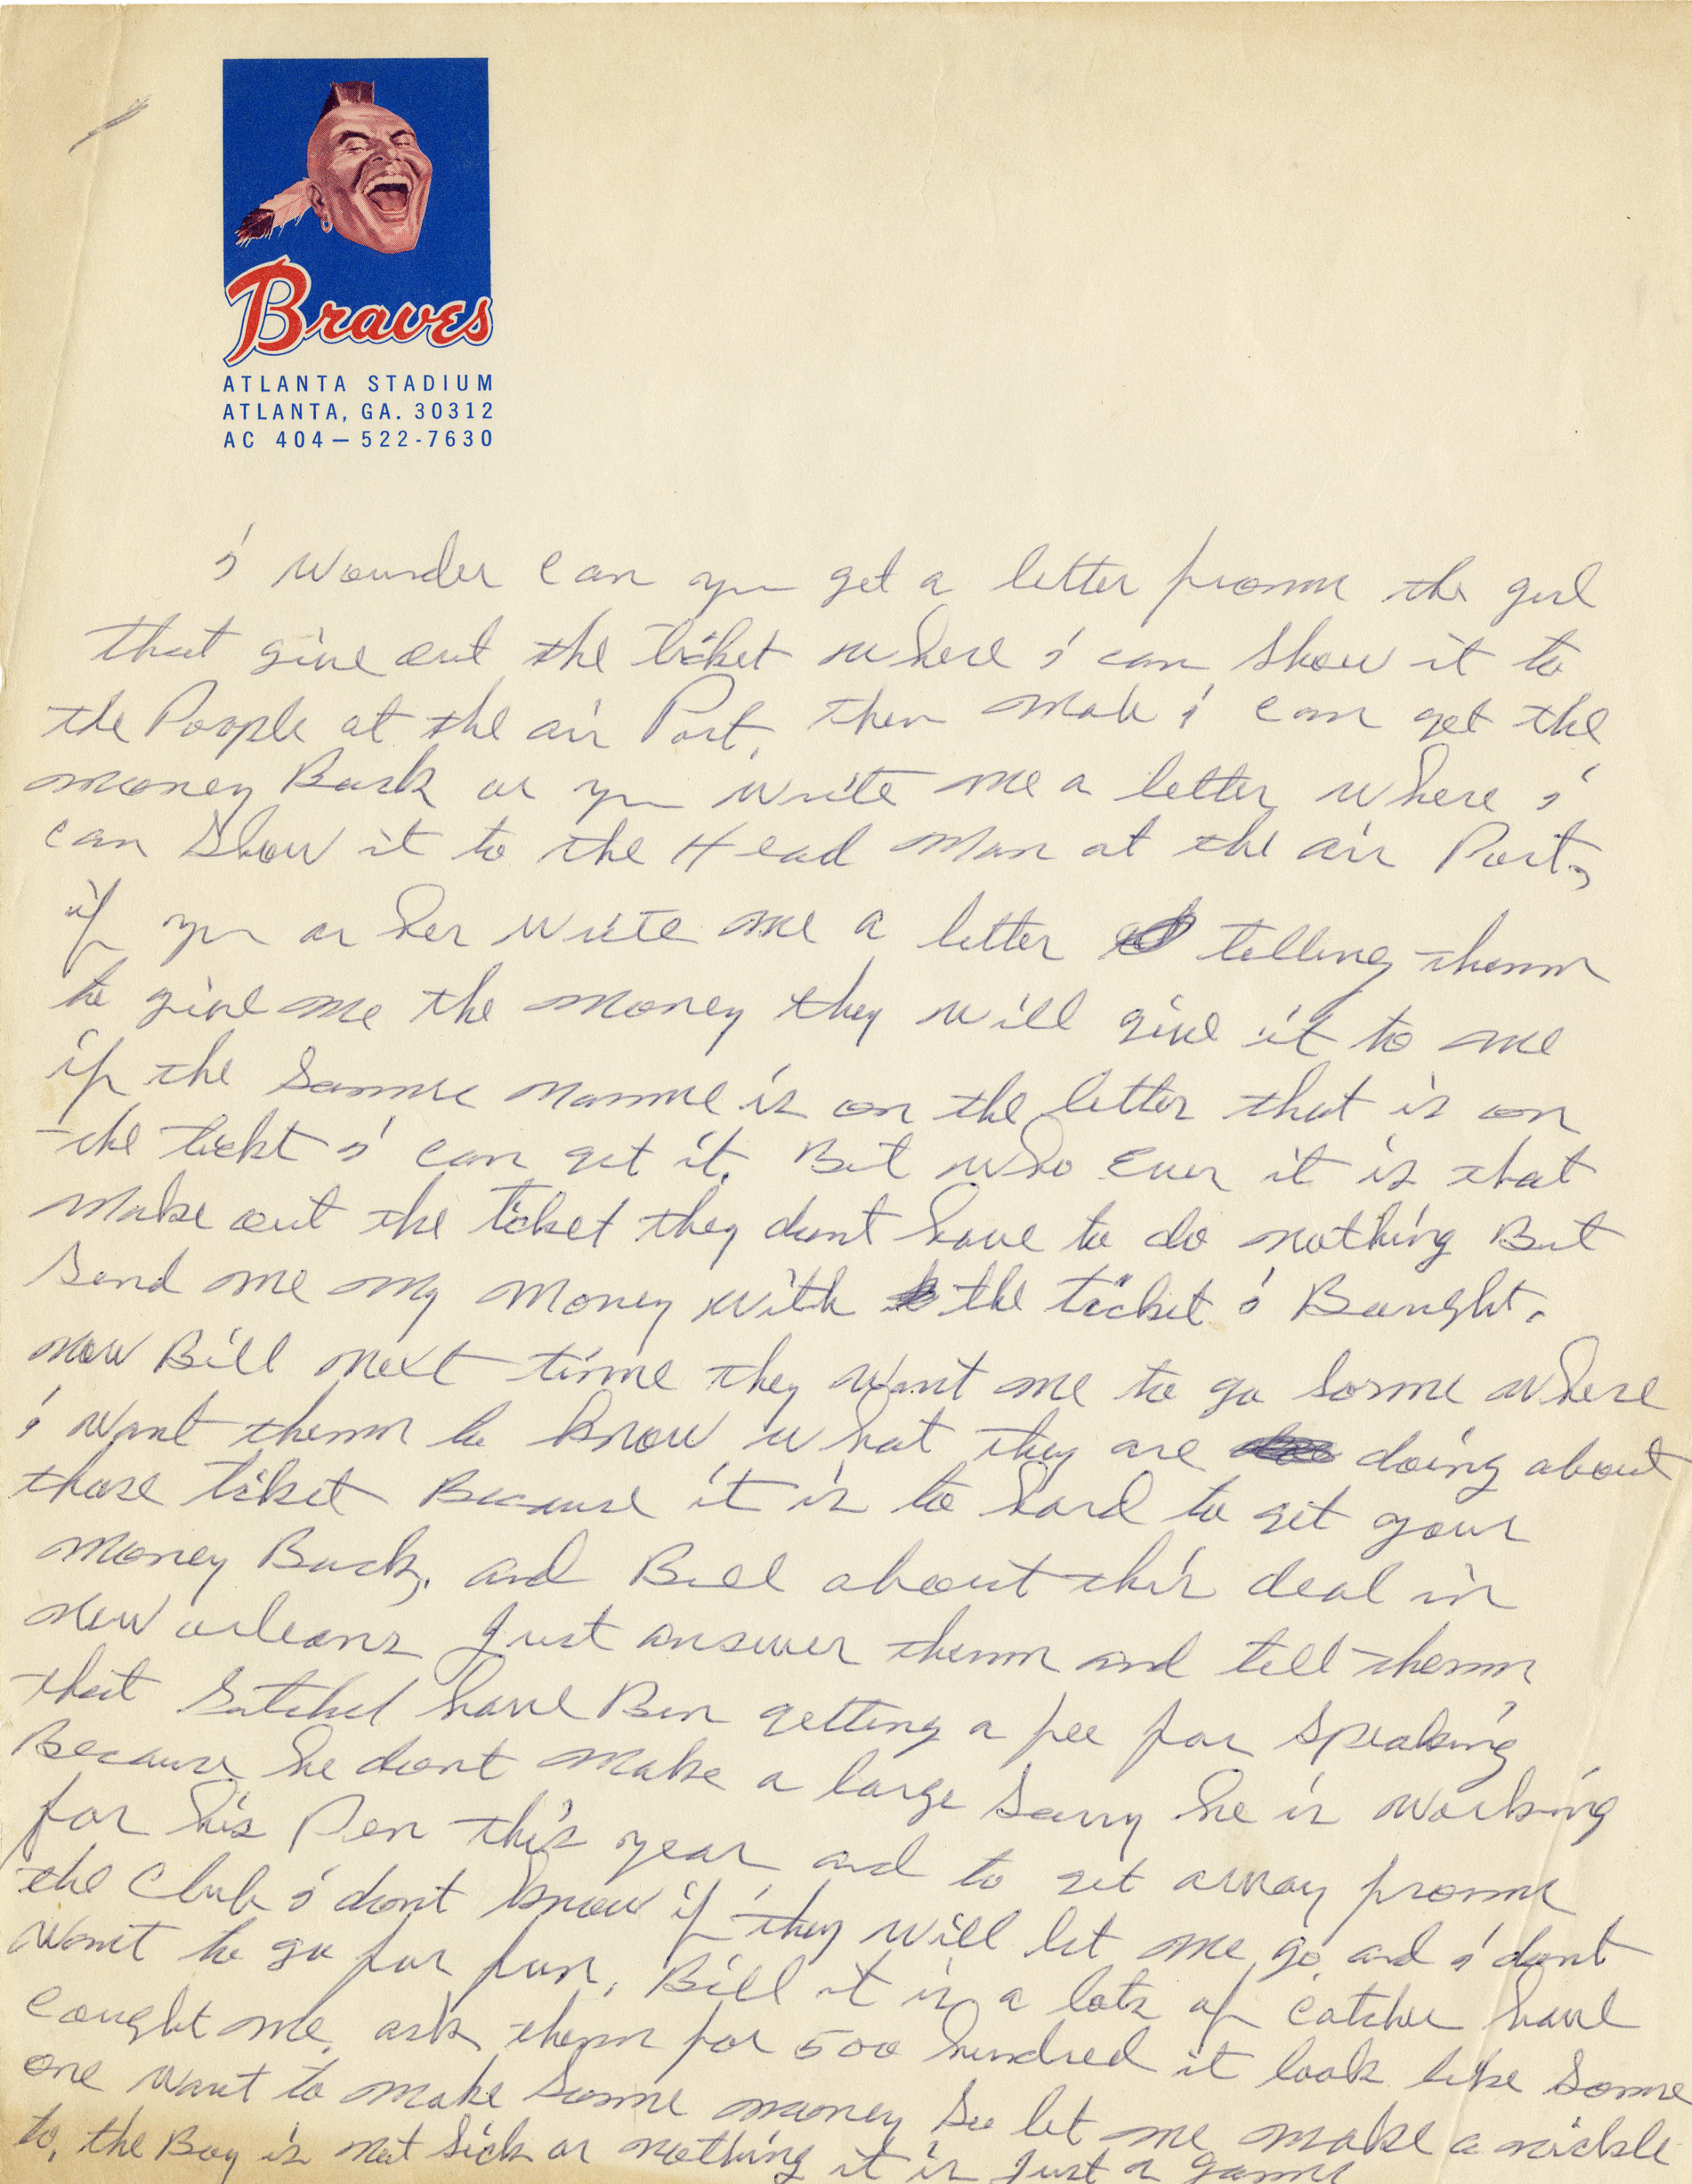 Braves
ATLANTA STADIUM
ATLANTA, GA. 30312
AC 404—522-7630
i wounder can you get a letter fromm the girl
that give out the ticket where i can show it to
the People at the air Port, then i can get the
money Back or you write me a letter where i
can show it to the Head Man at the air Port,
if you or her write me a letter telling themm
to give me the money they will give it to me
if the samme namme is on the letter that is on
the tickt i can get it. But who ever it is that
make out the ticket they dont have to do nothing But
send me my money with the ticket i Bought.
now Bill next timme they want me to go somme where
i want themm to know what they are doing about
those ticket Because it is to hard to get your
money Back. and Bill about this deal in
new orleans Just answer themm and tell themm
that Satchel have Ben getting a fee for speaking
Because he dont make a large he is working
for his Pen this year and to get away fromm
the Club i dont know if they will let me go and i dont
want to go for fun. Bill it is a lots of catcher have
caught me. ask them for 500 hundred it look like somme
one want to make somme money so let me make a nickle
to, the Boy is not sick or nothing it is Just a gamme